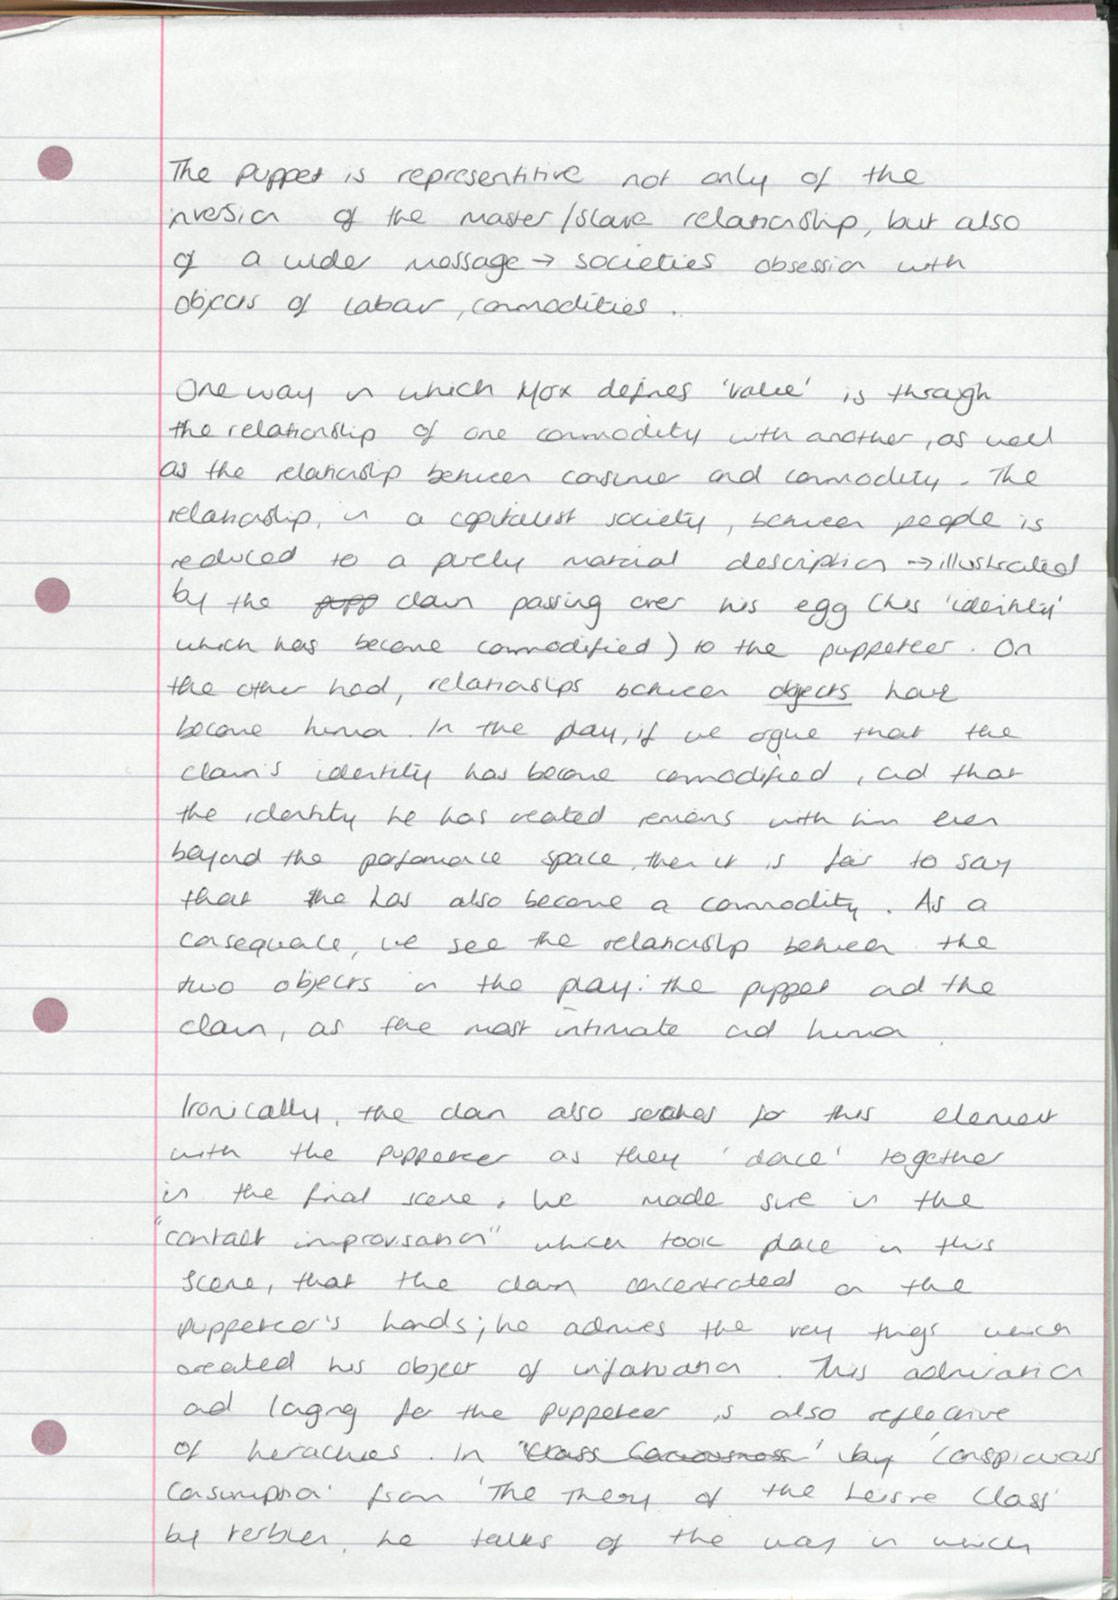 The puppet is representitive not only of the
inversion of the master/slave relationship, but also
of a wider message → societies obsession with
objects of labour, commodities.
One way in which Marx defines 'value' is through
the relationship of one commodity with another, as well
as the relationship between consumer and commodity. The
relationship, in a capitalist society, between people is
reduced to a purely material description → illustrated
by the pupp clown passing over his egg (his 'identity'
which has become commodified) to the puppeteer. On
the other hand, relationships between objects have
become human. In the play, if we argue that the
clown's identity has become commodified, and that
the identity he has created remains with him even
beyond the performance space, then it is fair to say
that he has also become a commodity. As a
consequence, we see the relationship between the
two objects in the play: the puppet and the
clown, as the most intimate and human.
Ironically, the clown also searches for this element
with the puppeteer as they 'dance' together
in the final scene. We made sure in the
"contact improvisation" which took place in this
scene, that the clown concentrated on the
puppeteer's hands; he admires the very things which
created his object of infatuation. This admiration
and longing for the puppeteer is also reflective
of hierachies. In 'Class Consciousness' by 'Conspicuous
Consumption' from 'The Theory of the Leisure Class'
by Veblen, he talks of the way in which